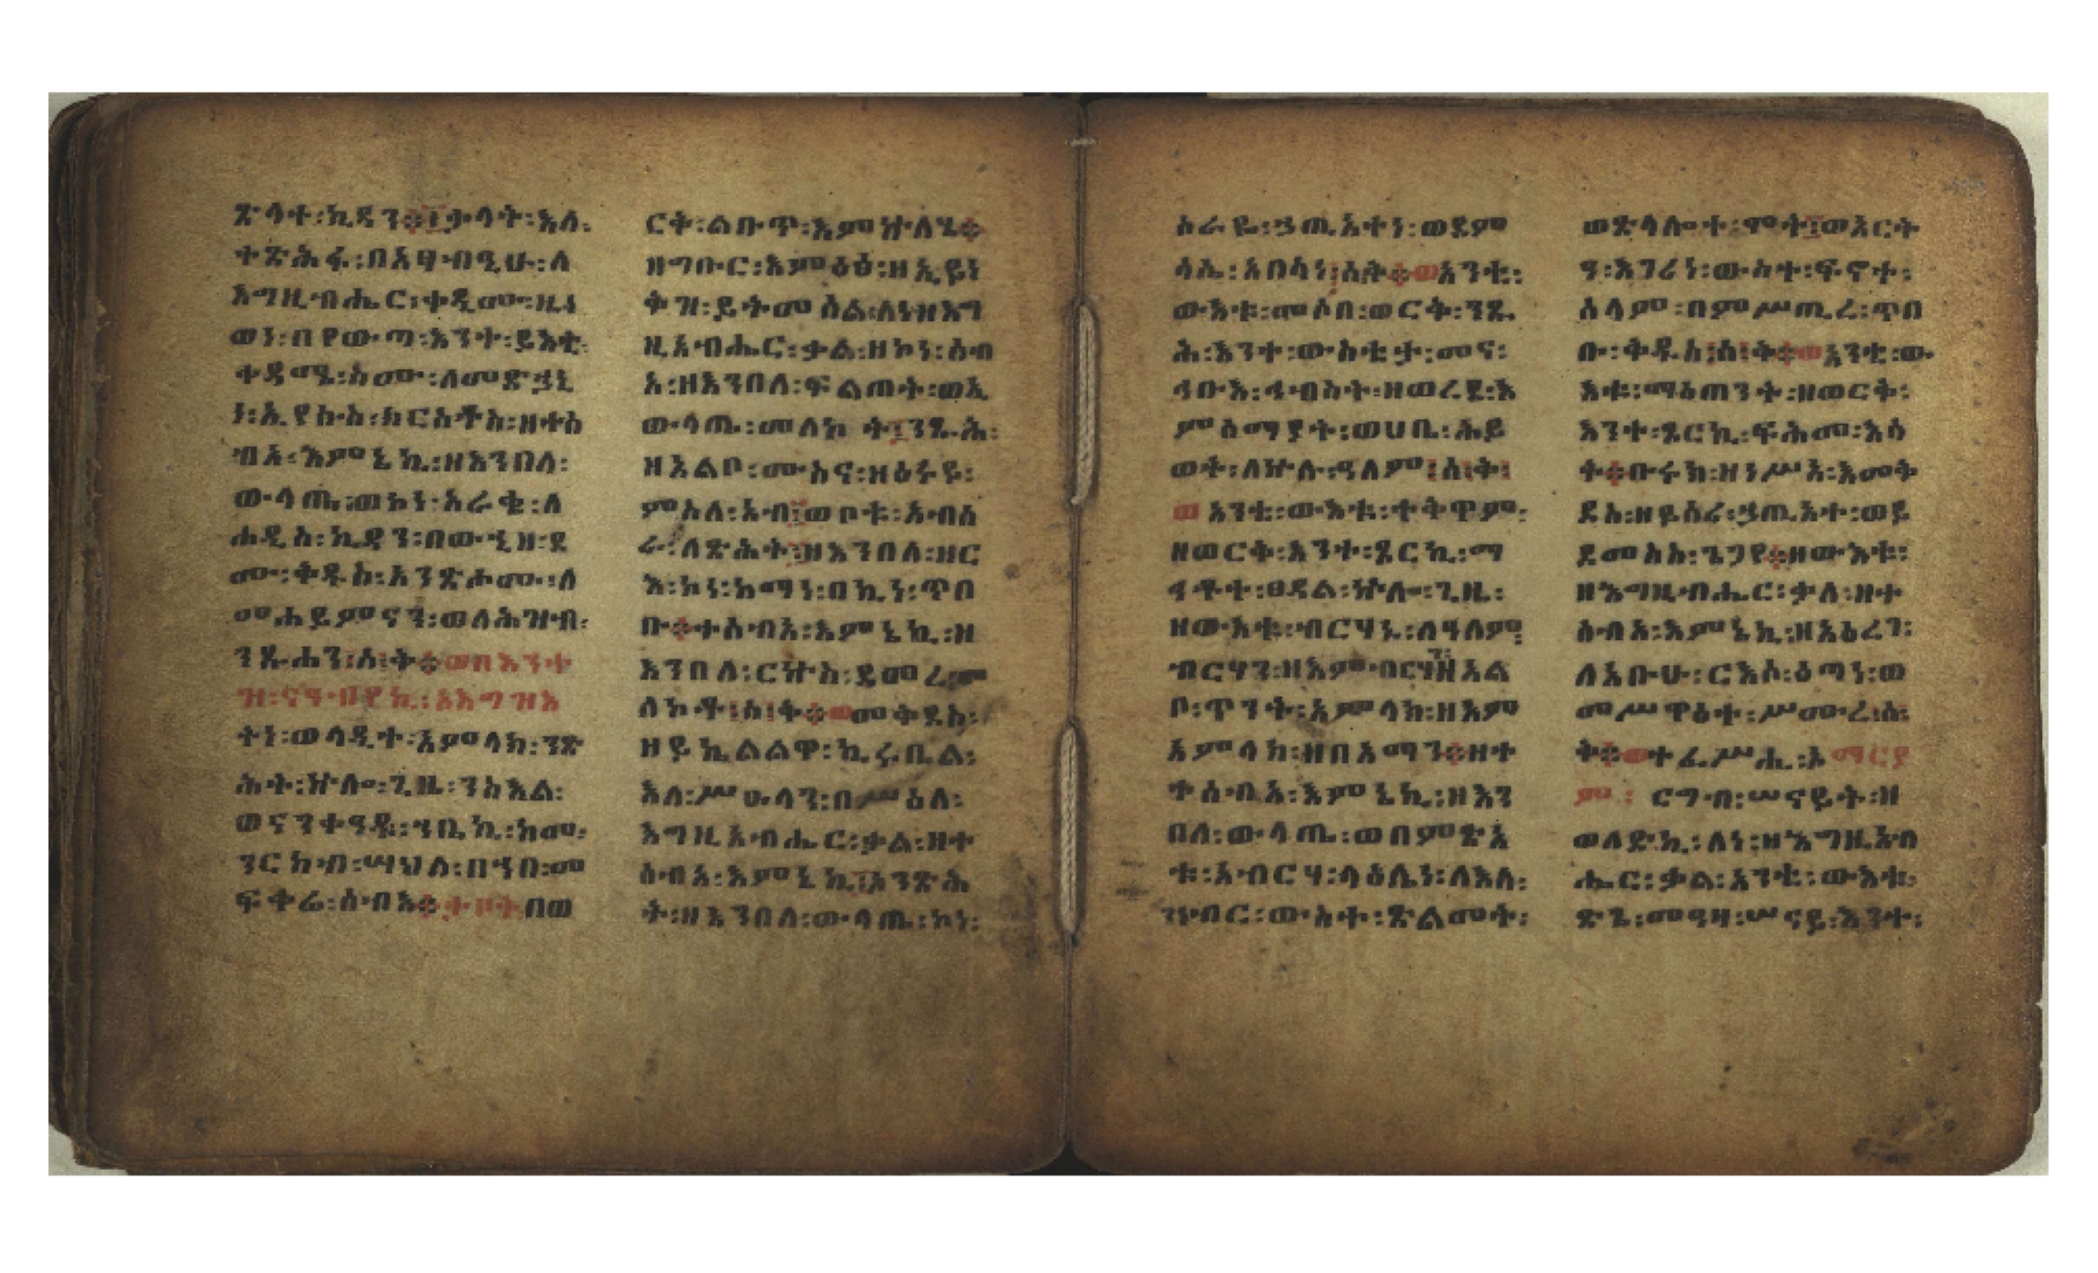 ጽላተ፡ኪዳን፨፲ቃላት፡እለ፡
ተጽሕፋ፡በአፃብዒሁ፡ለ
እግዚብሔር፡ቀዲሙ፡ዜነ
ወነ፡በየውጣ፡እንተ፡ይእቲ፡
ቀዳሜ፡ስሙ፡ለመድኃኒ
ነ፡ኢየሱስ፡ክርስቶስ፡ዘተሰ
ብአ፡እምኔኪ፡ዘእንበለ፡
ውላጤ፡ወኮነ፡አራቂ፡ለ
ሐዲስ፡ኪዳን፡በውኂዘ፡ደ
ሙ፡ቅዱስ፡አንጽሖሙ፡ለ
መሐይምናን፡ወለሕዝብ፡
ንጹሐን፡ሰ፡ቅ፨ወበእንተ
ዝ፡ናዓብየኪ፡እእግዝእ
ተነ፡ወላዲተ፡አምላክ፡ንጽ
ሕት፡ኵሎ፡ጊዜ፡ንስእል፡
ወናንቀዓዱ፡ኀቤኪ፡ከመ፡
ንርከብ፡ሣህለ፡በኀበ፡መ
ፍቀሬ፡ሰብእ፨ታቦት፡በወ
ርቅ፡ልቡጥ፡እምኵለሄ፨
ዘግቡር፡እምዕፅ፡ዘኢይነ
ቅዝ፡ይትመሰል፡ለነ፡ዘእግ
ዚአብሔር፡ቃል፡ዘኮነ፡ሰብ
አ፡ዘእንበለ፡ፍልጠት፡ወኢ
ውላጤ፡መለኮት፡ንጹሕ፡
ዘአልቦ፡ሙስና፡ዘዕሩይ፡
ምስለ፡አብ፡ወቦቱ፡አብሰ
ራ፡ለጽሕት፡ዘእንበለ፡ዘር
እ፡ኮነ፡ከማነ፡በኪነ፡ጥበ
ቡ፨ተሰብአ፡እምኔኪ፡ዘ
እንበለ፡ርኵስ፡ደመረ፡መ
ለኮቶ፡ሰ፡ቅ፨ወመቅደስ፡
ዘይኪልልዋ፡ኪሩቤል፡
እለ፡ሥዑላን፡በሥዕለ፡
እግዚአብሔር፡ቃል፡ዘተ
ሰብአ፡እምኔኪ፡እንጽሕ
ት፡ዘእንበለ፡ውላጤ፡ኮነ፡
ሰራዬ፡ኃጢአተነ፡ወደም
ሳሴ፡አበሳነ፡ሰቅ፨ወአንቲ፡
ውእቱ፡መሶበ፡ወርቅ፡ንጹ
ሕ፡እንተ፡ውስቲታ፡መና፡
ኅቡእ፡ኅብስት፡ዘወረደ፡እ
ምሰማያት፡ወሀቤ፡ሕይ
ወት፡ለኵሉ፡ዓለም፡ሰ፡ቅ፡
ወአንቲ፡ውእቱ፡ተቅዋም፡
ዘወርቅ፡እንተ፡ጾርኪ፡ማ
ኅቶተ፡ፀዳል፡ኵሎ፡ጊዜ፡
ዘውእቱ፡ብርሃኑ፡ለዓለም፡
ብርሃን፡ዘእምብርሃን፡ዘአል
ቦ፡ጥንት፡አምላክ፡ዘእም
አምላክ፡ዘበአማን፨ዘተ
ተሰብአ፡እምኔኪ፡ዘእን
በለ፡ውላጤ፡ወበምጽአ
ቱ፡አብርሃ፡ላዕሌነ፡ለእለ፡
ንነብር፡ውስተ፡ጽልመት፡
ወጽላሎተ፡ሞት፡ወአርት
ዓ፡እገሪነ፡ውስተ፡ፍኖተ፡
ሰላም፡በምሥጢረ፡ጥበ
ቡ፡ቅዱስ፡ሰ፡ቅ፨ወአንቲ፡ው
እቱ፡ማዕጠንት፡ዘወርቅ፡
እንተ፡ጾርኪ፡ፍሕመ፡እሳ
ት፨ቡሩክ፡ዘነሥአ፡እመቅ
ደስ፡ዘይሰሪ፡ኃጢአተ፡ወይ
ደመስስ፡ጌጋየ፨ዘውእቱ፡
ዘእግዚብሔር፡ቃለ፡ዘተ
ሰብአ፡እምኔኪ፡ዘአዕረገ፡
ለአቡሁ፡ርእሶ፡ዕጣነ፡ወ
መሥዋዕተ፡ሥሙረ፡ሰ፡
ቅ፨ወተፈሥሒ፡ኦማርያ
ም፡ ርግብ፡ሠናይት፡ዘ
ወለድኪ፡ለነ፡ዘእግዚአብ
ሔር፡ቃል፡አንቲ፡ውእቱ፡
ጽጌ፡መዓዛ፡ሠናይ፡እንተ፡